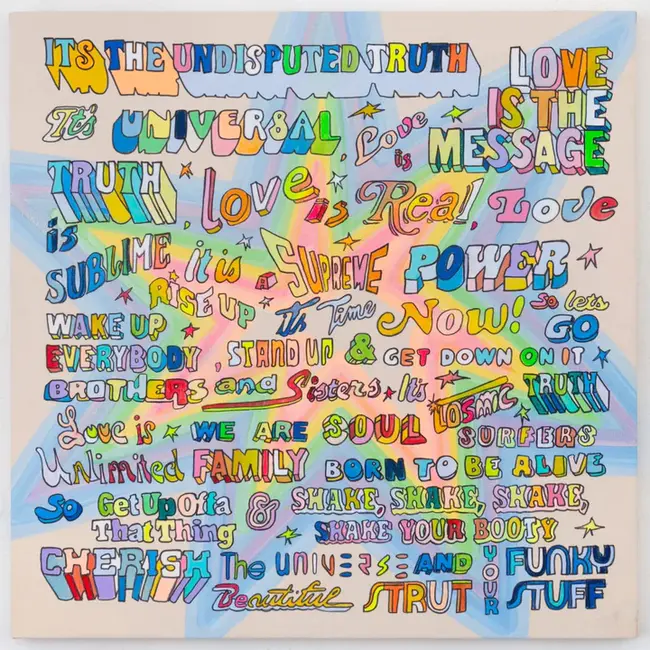 ITS THE UNDISPUTED TRUTH LOVE IS THE MESSAGE
It's UNIVERSAL, Love is
TRUTH, LOVE is Real, Love
is SUBLIME it is a SUPREME POWER
RISE UP It's Time NOW! So lets GO
WAKE UP
EVERYBODY, STAND UP & GET DOWN ON IT
BROTHERS and Sisters It's COSMIC TRUTH
Love is WE ARE SOUL SURFERS
Unlimited FAMILY BORN TO BE ALIVE
So Get Up Offa That Thing & SHAKE, SHAKE, SHAKE,
SHAKE YOUR BOOTY
CHERISH The UNIVERSE AND YOUR FUNKY STUFF
Beautiful STRUT